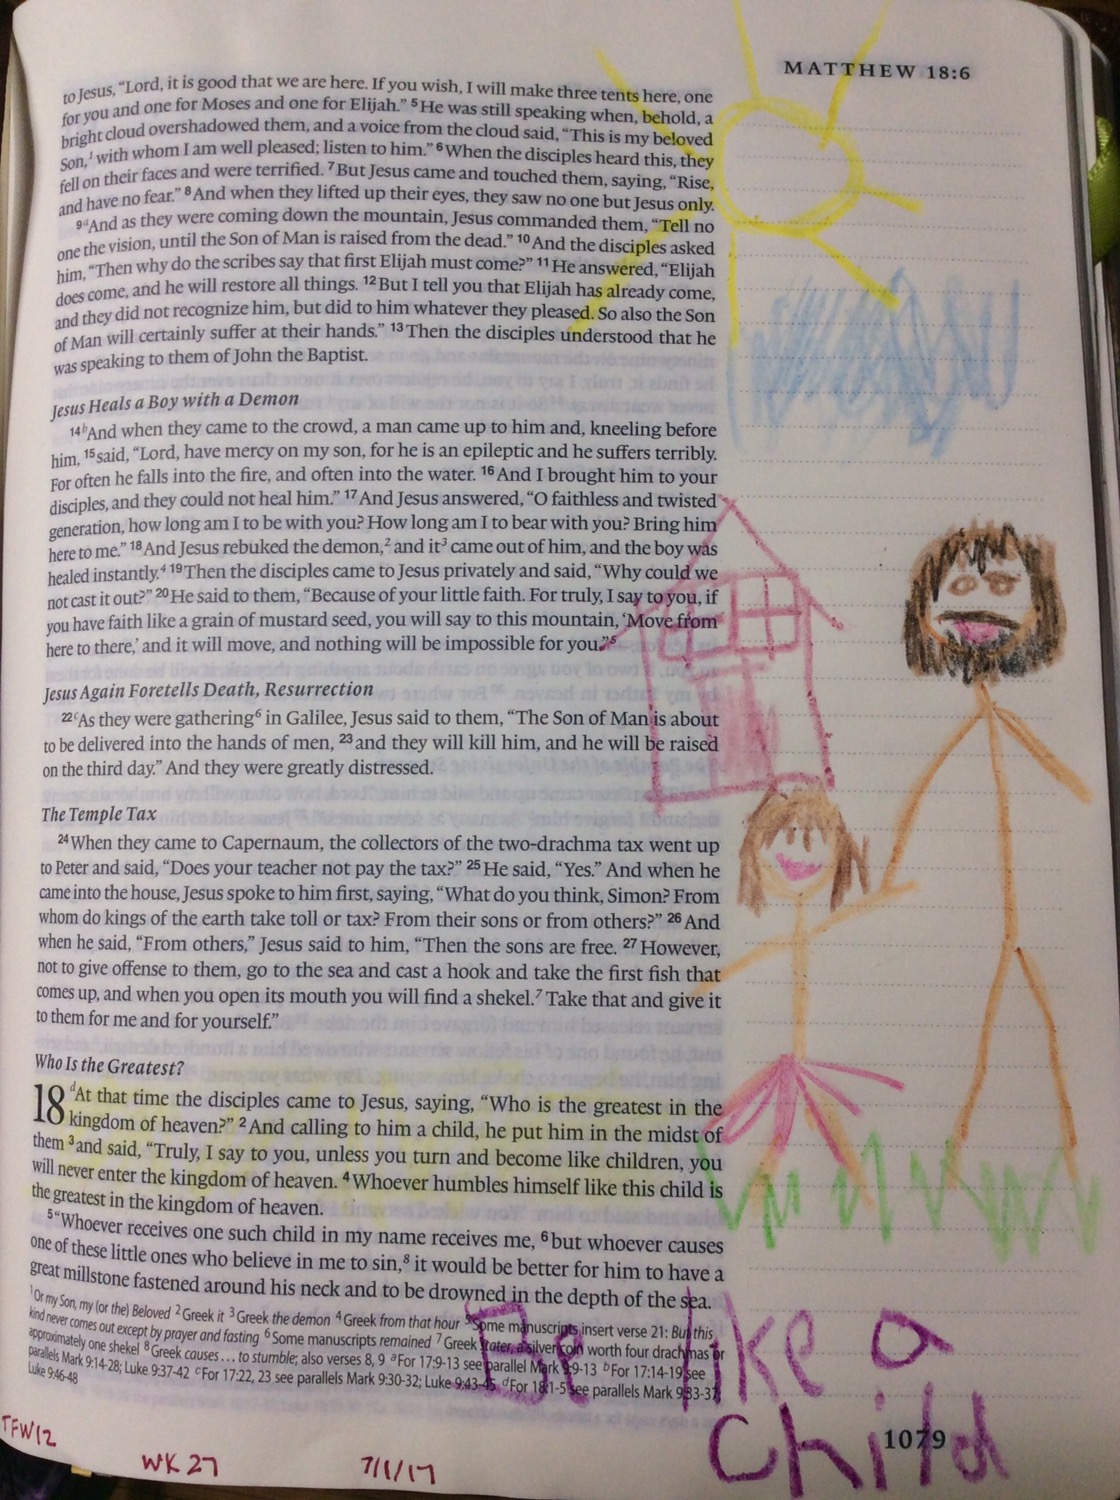 MATTHEW 18:6
to Jesus, “Lord, it is good that we are here. If you wish, I will make three tents here, one
for you and one for Moses and one for Elijah.” ⁵He was still speaking when, behold, a
bright cloud overshadowed them, and a voice from the cloud said, “This is my beloved
Son,¹ with whom I am well pleased; listen to him.” ⁶When the disciples heard this, they
fell on their faces and were terrified. ⁷But Jesus came and touched them, saying, “Rise,
and have no fear.” ⁸And when they lifted up their eyes, they saw no one but Jesus only.
⁹ᵃAnd as they were coming down the mountain, Jesus commanded them, “Tell no
one the vision, until the Son of Man is raised from the dead.” ¹⁰And the disciples asked
him, “Then why do the scribes say that first Elijah must come?” ¹¹He answered, “Elijah
does come, and he will restore all things. ¹²But I tell you that Elijah has already come,
and they did not recognize him, but did to him whatever they pleased. So also the Son
of Man will certainly suffer at their hands.” ¹³Then the disciples understood that he
was speaking to them of John the Baptist.
Jesus Heals a Boy with a Demon
¹⁴ᵇAnd when they came to the crowd, a man came up to him and, kneeling before
him, ¹⁵said, “Lord, have mercy on my son, for he is an epileptic and he suffers terribly.
For often he falls into the fire, and often into the water. ¹⁶And I brought him to your
disciples, and they could not heal him.” ¹⁷And Jesus answered, “O faithless and twisted
generation, how long am I to be with you? How long am I to bear with you? Bring him
here to me.” ¹⁸And Jesus rebuked the demon,² and it³ came out of him, and the boy was
healed instantly.⁴ ¹⁹Then the disciples came to Jesus privately and said, “Why could we
not cast it out?” ²⁰He said to them, “Because of your little faith. For truly, I say to you, if
you have faith like a grain of mustard seed, you will say to this mountain, ‘Move from
here to there,’ and it will move, and nothing will be impossible for you.”⁵
Jesus Again Foretells Death, Resurrection
²²ᶜAs they were gathering⁶ in Galilee, Jesus said to them, “The Son of Man is about
to be delivered into the hands of men, ²³and they will kill him, and he will be raised
on the third day.” And they were greatly distressed.
The Temple Tax
²⁴When they came to Capernaum, the collectors of the two-drachma tax went up
to Peter and said, “Does your teacher not pay the tax?” ²⁵He said, “Yes.” And when he
came into the house, Jesus spoke to him first, saying, “What do you think, Simon? From
whom do kings of the earth take toll or tax? From their sons or from others?” ²⁶And
when he said, “From others,” Jesus said to him, “Then the sons are free. ²⁷However,
not to give offense to them, go to the sea and cast a hook and take the first fish that
comes up, and when you open its mouth you will find a shekel.⁷ Take that and give it
to them for me and for yourself.”
Who Is the Greatest?
18 ᵈAt that time the disciples came to Jesus, saying, “Who is the greatest in the
kingdom of heaven?” ²And calling to him a child, he put him in the midst of
them ³and said, “Truly, I say to you, unless you turn and become like children, you
will never enter the kingdom of heaven. ⁴Whoever humbles himself like this child is
the greatest in the kingdom of heaven.
⁵“Whoever receives one such child in my name receives me, ⁶but whoever causes
one of these little ones who believe in me to sin,⁸ it would be better for him to have a
great millstone fastened around his neck and to be drowned in the depth of the sea.
¹Or my Son, my (or the) Beloved ²Greek it ³Greek the demon ⁴Greek from that hour ⁵Some manuscripts insert verse 21: But this
kind never comes out except by prayer and fasting ⁶Some manuscripts remained ⁷Greek stater, a silver coin worth four drachmas or
approximately one shekel ⁸Greek causes . . . to stumble; also verses 8, 9 ᵃFor 17:9-13 see parallel Mark 9:9-13 ᵇFor 17:14-19 see
parallels Mark 9:14-28; Luke 9:37-42 ᶜFor 17:22, 23 see parallels Mark 9:30-32; Luke 9:43-45 ᵈFor 18:1-5 see parallels Mark 9:33-37;
Luke 9:46-48
Be like a
child
1079
TFW12 WK 27 7/1/17